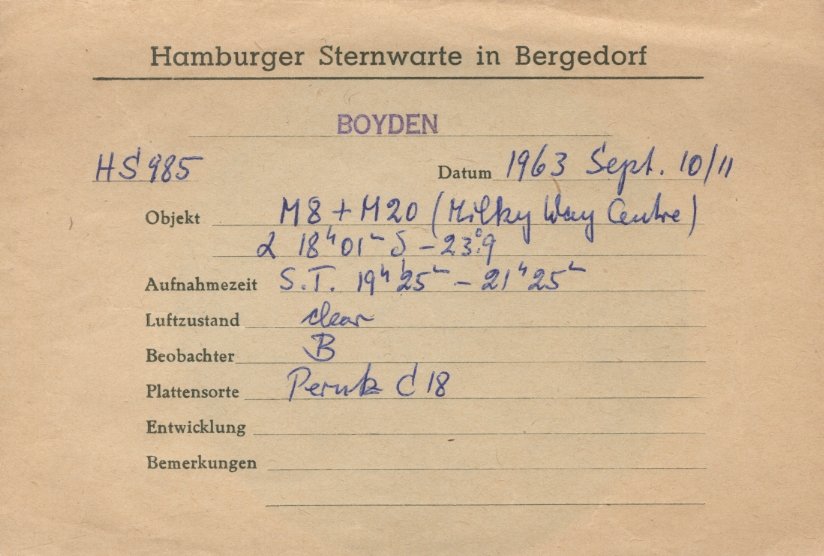 Hamburger Sternwarte in Bergedorf
BOYDEN
HS 985 Datum 1963 Sept. 10/11
Objekt M8 + M20 (Milky Way Centre)
α 18ʰ01ᵐ δ -23°.9
Aufnahmezeit S.T. 19ʰ25ᵐ - 21ʰ25ᵐ
Luftzustand clear
Beobachter B
Plattensorte Perutz C 18
Entwicklung
Bemerkungen